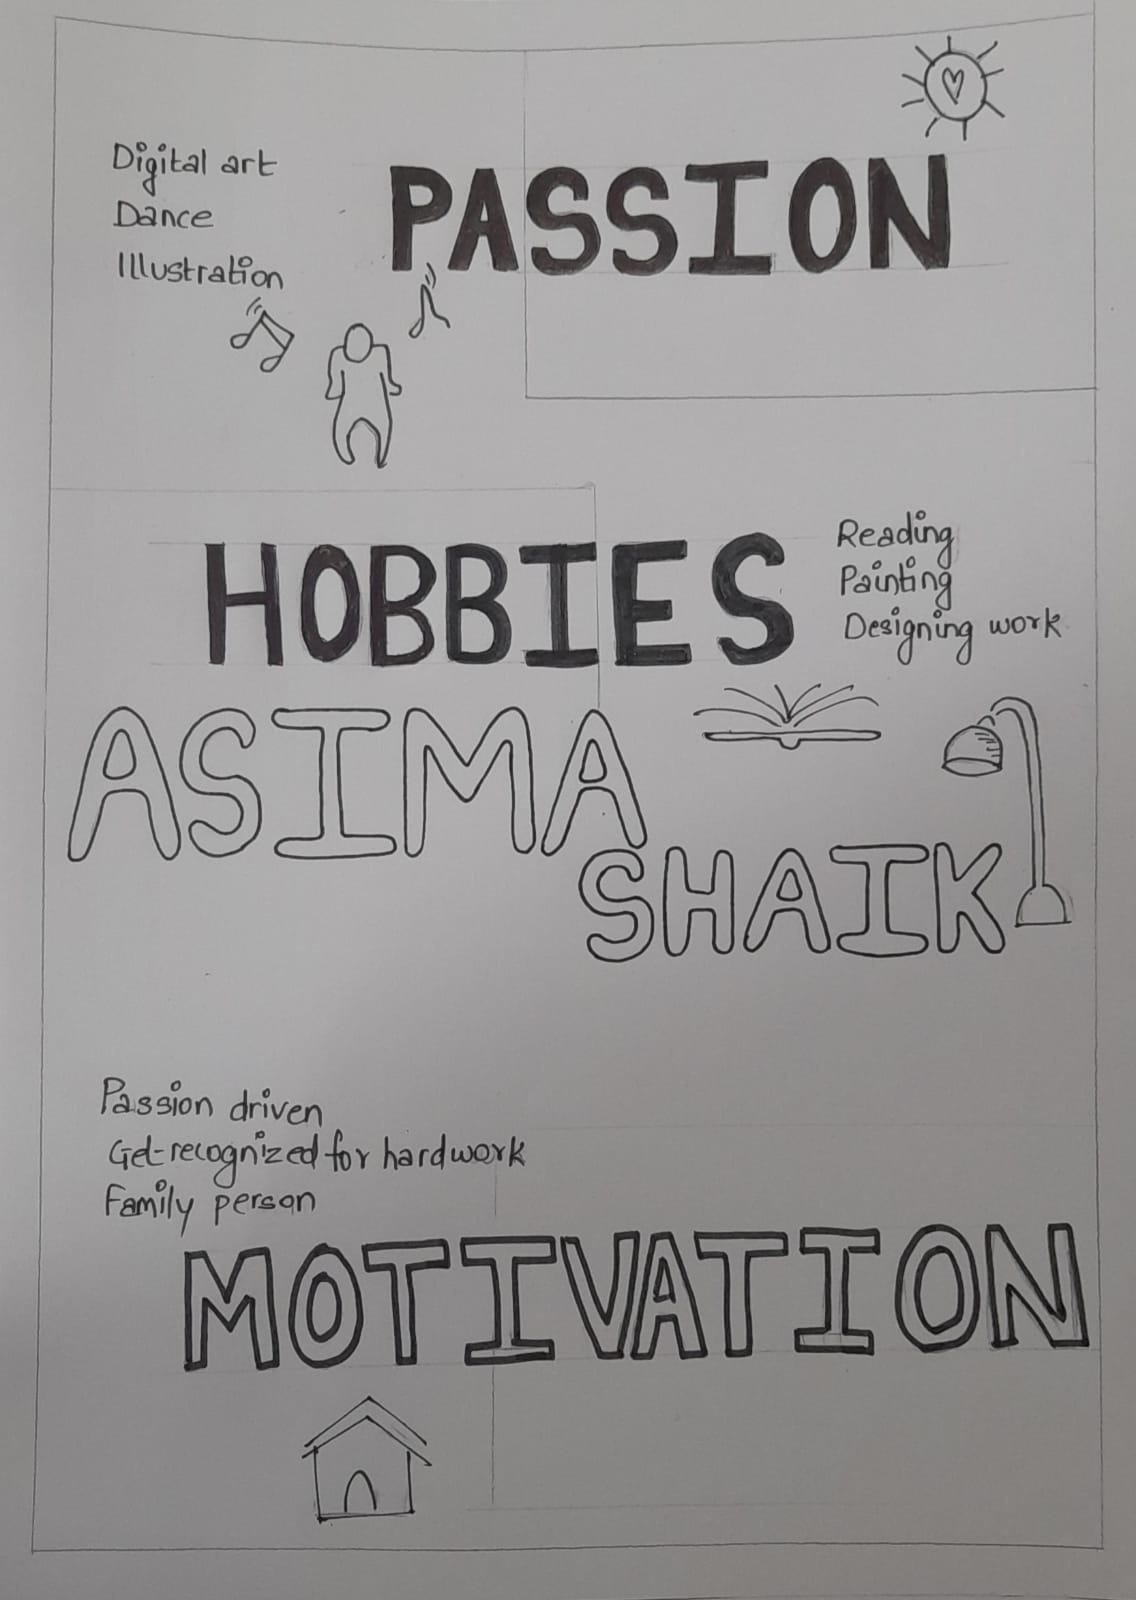 Digital art
Dance
Illustration
PASSION
HOBBIES
Reading
Painting
Designing work
ASIMA
SHAIK
Passion driven
Get recognized for hardwork
Family person
MOTIVATION